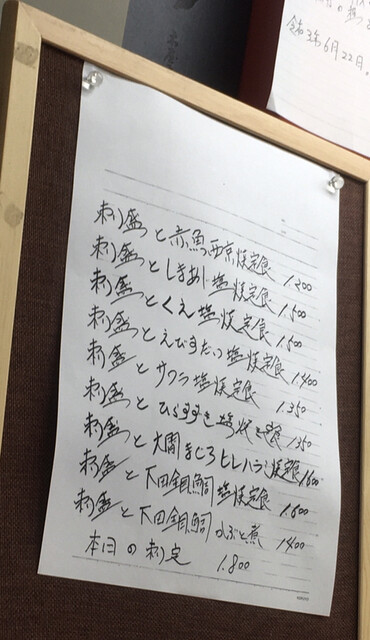 令和3年6月22日。
刺盛と赤魚西京焼定食 1.200
刺盛としまあじ塩焼定食 1.500
刺盛とくえ塩焼定食 1.500
刺盛とえびすだい塩焼定食 1.400
刺盛とサワラ塩焼定食 1.350
刺盛とひらすずき塩焼定食 1.350
刺盛と大間まぐろヒレハラミ焼定食 1.600
刺盛と下田金目鯛塩焼定食 1.600
刺盛と下田金目鯛かぶと煮 1.400
本日の刺定 1.800